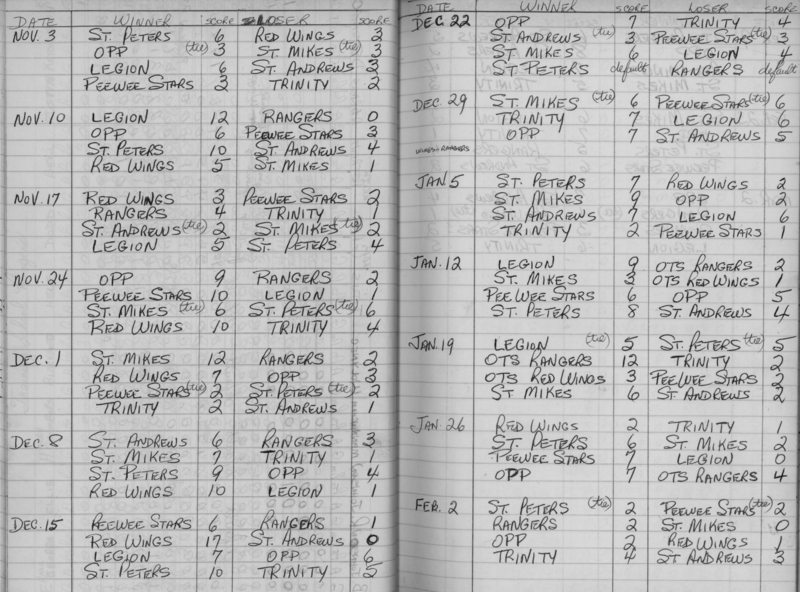 DATE WINNER SCORE LOSER SCORE
NOV. 3 ST. PETERS 6 RED WINGS 3
OPP (tie) 3 ST. MIKES (tie) 3
LEGION 6 ST. ANDREWS 3
PEEWEE STARS 3 TRINITY 2
NOV. 10 LEGION 12 RANGERS 0
OPP 6 PEEWEE STARS 3
ST. PETERS 10 ST. ANDREWS 4
RED WINGS 5 ST. MIKES 1
NOV. 17 RED WINGS 3 PEEWEE STARS 2
RANGERS 4 TRINITY 1
ST. ANDREWS (tie) 2 ST. MIKES (tie) 2
LEGION 5 ST. PETERS 4
NOV. 24 OPP 9 RANGERS 2
PEEWEE STARS 10 LEGION 1
ST. MIKES (tie) 6 ST. PETERS (tie) 6
RED WINGS 10 TRINITY 4
DEC. 1 ST. MIKES 12 RANGERS 2
RED WINGS 7 OPP 3
PEEWEE STARS (tie) 2 ST. PETERS (tie) 2
TRINITY 2 ST. ANDREWS 1
DEC. 8 ST. ANDREWS 6 RANGERS 3
ST. MIKES 7 TRINITY 1
ST. PETERS 9 OPP 4
RED WINGS 10 LEGION 1
DEC. 15 PEEWEE STARS 6 RANGERS 1
RED WINGS 17 ST. ANDREWS 0
LEGION 7 OPP 6
ST. PETERS 10 TRINITY 5
DATE WINNER SCORE LOSER SCORE
DEC. 22 OPP 7 TRINITY 4
ST. ANDREWS (tie) 3 PEEWEE STARS (tie) 3
ST. MIKES 6 LEGION 4
ST. PETERS default RANGERS default
DEC. 29 ST. MIKES (tie) 6 PEEWEE STARS (tie) 6
TRINITY 7 LEGION 6
OPP 7 ST. ANDREWS 5
WINGS + RANGERS
JAN. 5 ST. PETERS 7 RED WINGS 2
ST. MIKES 9 OPP 2
ST. ANDREWS 7 LEGION 6
TRINITY 2 PEEWEE STARS 1
JAN. 12 LEGION 9 OTS RANGERS 2
ST. MIKES 3 OTS RED WINGS 1
PEEWEE STARS 6 OPP 5
ST. PETERS 8 ST. ANDREWS 4
JAN. 19 LEGION (tie) 5 ST. PETERS (tie) 5
OTS RANGERS 12 TRINITY 2
OTS RED WINGS 3 PEEWEE STARS 2
ST MIKES 6 ST. ANDREWS 2
JAN. 26 RED WINGS 2 TRINITY 1
ST. PETERS 6 ST. MIKES 2
PEEWEE STARS 7 LEGION 0
OPP 7 OTS RANGERS 4
FEB. 2 ST. PETERS (tie) 2 PEEWEE STARS (tie) 2
RANGERS 2 ST. MIKES 0
OPP 2 RED WINGS 1
TRINITY 4 ST. ANDREWS 3